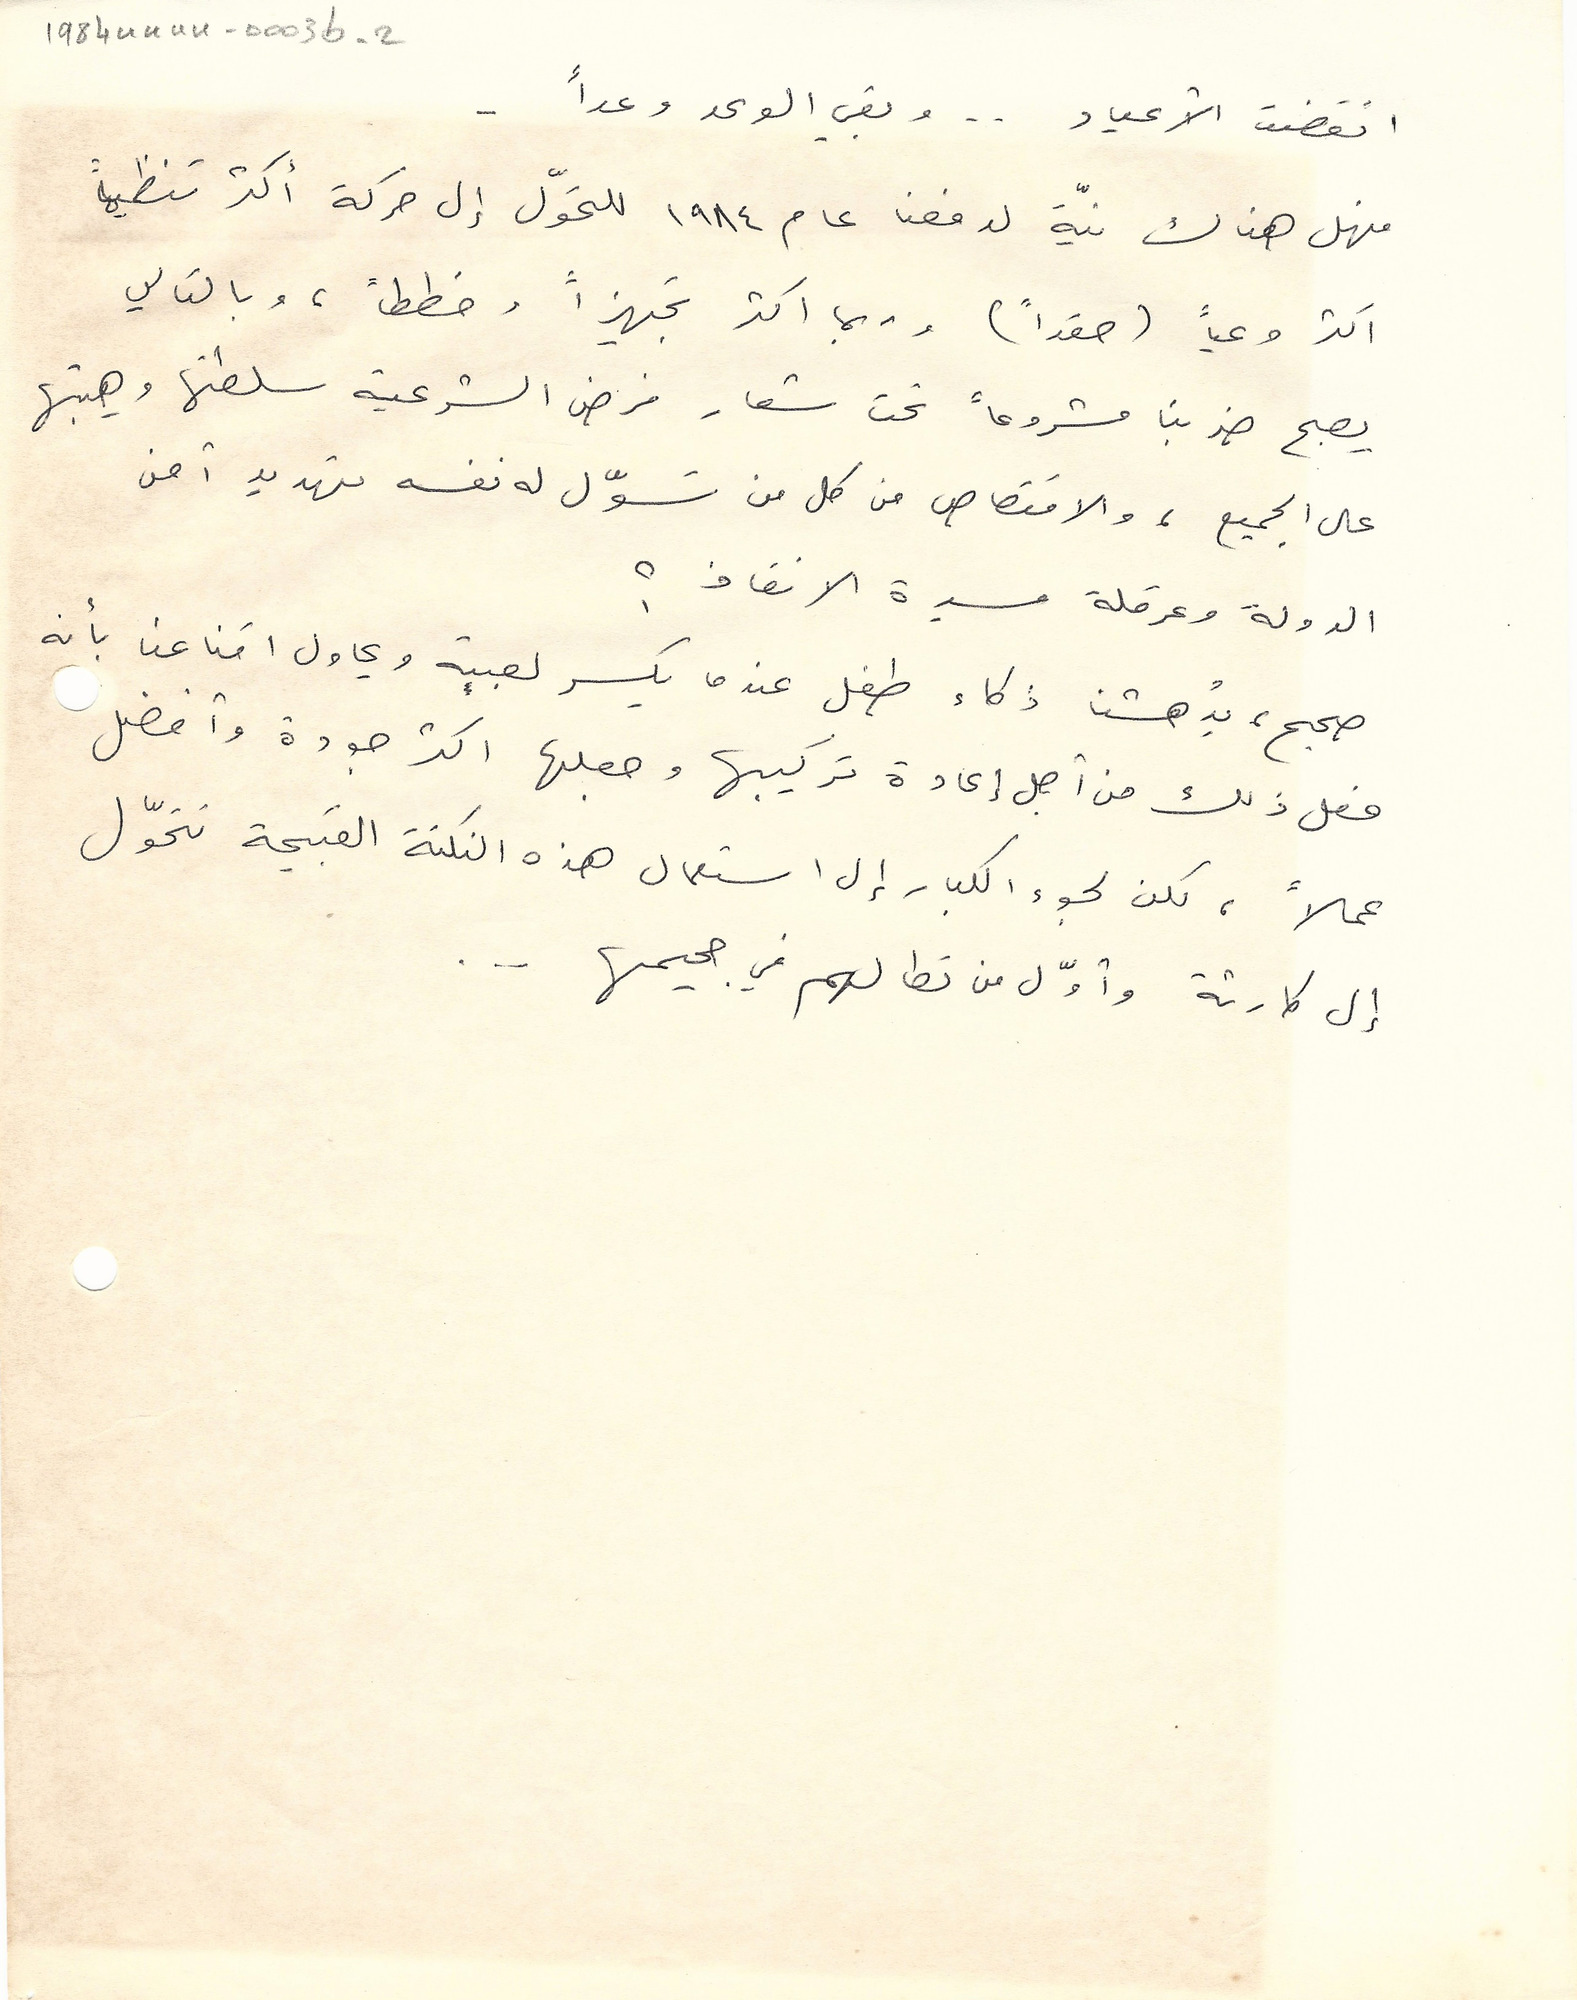 1984uuuu-00036.2
انقضت الأعياد .. وبقي الوعد وعداً -
فهل هناك نيّة لدفعنا عام ١٩٨٤ للتحوّل إلى حركة أكثر تنظيماً
اكثر وعياً (حقداً) وربما اكثر تجهيزاً وخططاً، وبالتالي
يصبح ضربنا مشروعاً تحت شعار فرض الشرعية سلطتها وهيبتها
على الجميع، والاقتصاص من كل من تسوّل له نفسه تهديد أمن
الدولة وعرقلة مسيرة الانقاذ ؟
صحيح، يُدهشنا ذكاء طفل عندما يكسر لعبته ويحاول اقناعنا بأنه
فعل ذلك من أجل إعادة تركيبها وجعلها اكثر جودة وأفضل
عملاً، لكن لجوء الكبار إلى استعمال هذه النكتة القبيحة تتحوّل
إلى كارثة وأوّل من تطالهم في جحيمها -.